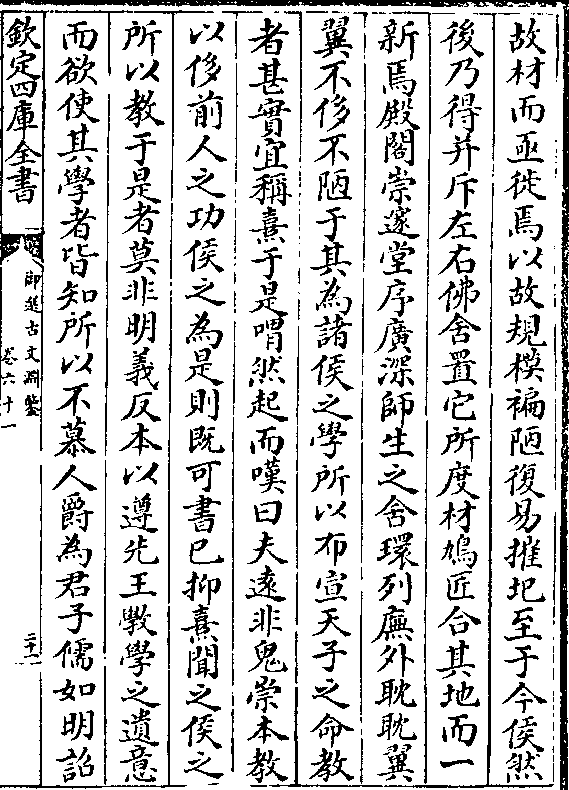 故材而亟徙焉以故規模褊陋復易摧圮至于今侯然
後乃得并斥左右佛舍置它所度材鳩匠合其地而一
新焉殿閣崇邃堂序廣深師生之舍環列廡外耽耽翼
翼不侈不陋于其為諸侯之學所以布宣天子之命教
者甚實宜稱熹于是喟然起而嘆曰夫遠非鬼崇本教
以侈前人之功侯之為是則既可書已抑熹聞之侯之
所以教于是者莫非明義反本以遵先王教學之遺意
而欲使其學者皆知所以不慕人爵為君子儒如明詔
欽定四庫全書
御選古文淵鑒
卷六十一